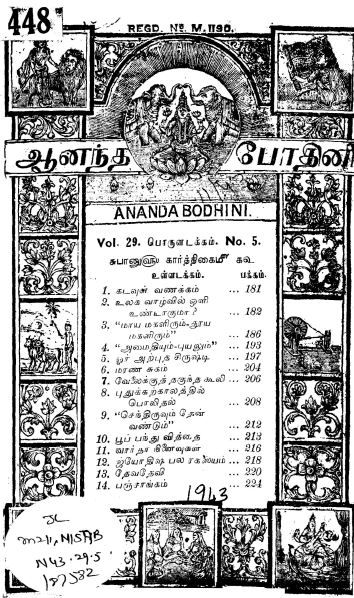 448
REGD. No. M. 1190.
ஆனந்த போதினி
ANANDA BODHINI.
Vol. 29. பொருளடக்கம். No. 5.
சுபானுஸ்ரீ கார்த்திகைமீ
உள்ளடக்கம். பக்கம்.
1. கடவுள் வணக்கம் ... 181
2. உலக வாழ்வில் ஒளி
உண்டாகுமா? ... 182
3. "மாய மகளிரும்-தூய
மகளிரும்" ... 186
4. "அமைதியும்-புயலும்" ... 193
5. ஓர் அற்புத சிருஷ்டி ... 197
6. மரண சுகம் ... 204
7. வேலைக்குத் தகுந்த கூலி ... 206
8. புதுக்கற்காலத்தில்
பொலிதல் ... 208
9. "செந்திருவும் தேன்
வண்டும்" ... 212
10. பூப் பந்து வித்தை ... 213
11. வார்தா நினைவுகள் ... 216
12. ஜயோதிஷ பல ரகஸ்யம் ... 218
13. தேவதேவி ... 220
14. பஞ்சாங்கம் ... 224
1943
N43.29.5
187532